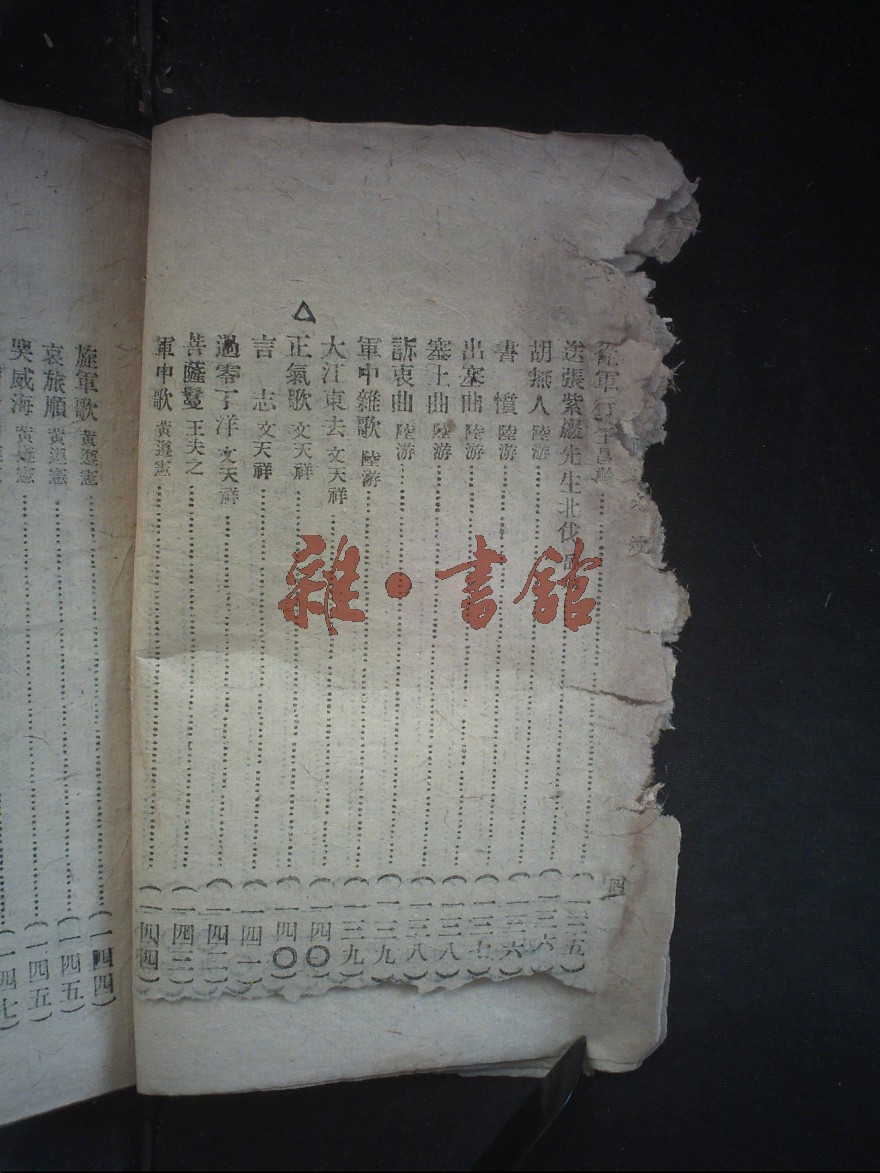 四
從軍行 王昌齡 (一三五)
送張紫巖先生北伐 (一三六)
胡無人 陸游 (一三六)
書憤 陸游 (一三七)
出塞曲 陸游 (一三八)
塞上曲 陸游 (一三八)
訴衷曲 陸游 (一三九)
軍中雜歌 陸游 (一三九)
大江東去 文天祥 (一四〇)
△正氣歌 文天祥 (一四〇)
言志 文天祥 (一四一)
過零丁洋 文天祥 (一四二)
菩薩鬘 王夫之 (一四三)
軍中歌 黃遵憲 (一四四)
旋軍歌 黃遵憲 (一四四)
哀旅順 黃遵憲 (一四五)
哭威海 黃遵憲 (一四五)
(一四七)
雜·書館